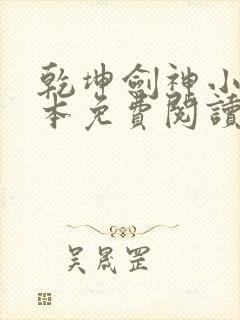 乾坤劍神小
本免費閱讀
吴晟罡